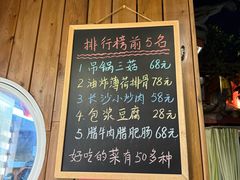 排行榜前5名
1 吊锅三菇 68元
2 油炸薄荷排骨78元
3 长沙小炒肉 58元
4 包浆豆腐 28元
5 腊牛肉腊肥肠68元
好吃的菜有50多种